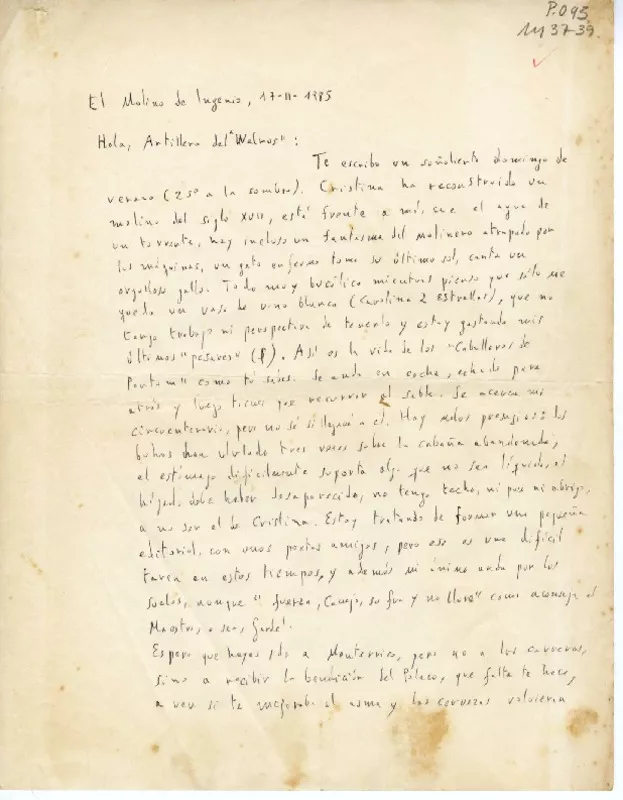 P.095
El Molino de Ingenio, 17-II-1985
Hola, Artillero del "Walrus":
Te escribo un soñoliento domingo de
verano (25º a la sombra). Cristina ha reconstruido un
molino del siglo XVII, está frente a mí, cae el agua de
un torrente, hay incluso un fantasma del molinero atrapado por
las máquinas, un gato enfermo toma su último sol, canta un
orgulloso gallo. Todo muy bucólico mientras pienso que sólo me
queda un vaso de vino blanco (Carolina 2 Estrellas), que no
tengo trabajo ni perspectiva de tenerlo y estoy gastando mis
últimos "pesares" ($). Así es la vida de los "Caballeros de
Fortuna" como tú sabes. Se anda en coche, echado para
atrás y luego tienes que recurrir al sable. Se acerca mi
cincuentenario, pero no sé si llegaré a él. Hay malos presagios: los
buhos han ululado tres veces sobre la cabaña abandonada,
el estómago difícilmente soporta algo que no sea líquido, el
hígado debe haber desaparecido, no tengo techo, ni pan ni abrigo,
a no ser el de Cristina. Estoy tratando de formar una pequeña
editorial, con unos poetas amigos, pero eso es una difícil
tarea en estos tiempos, y además mi ánimo anda por los
suelos, aunque "fuerza, Canejo, sufra y no llore" como aconseja el
Maestro, o sea, Gardel.
Espero que hayas ido a Monterrico, pero no a las carreras,
sino a recibir la bendición del Polaco, que falta te hace,
a ver si te mejoraba el asma y las cervezas volvieran